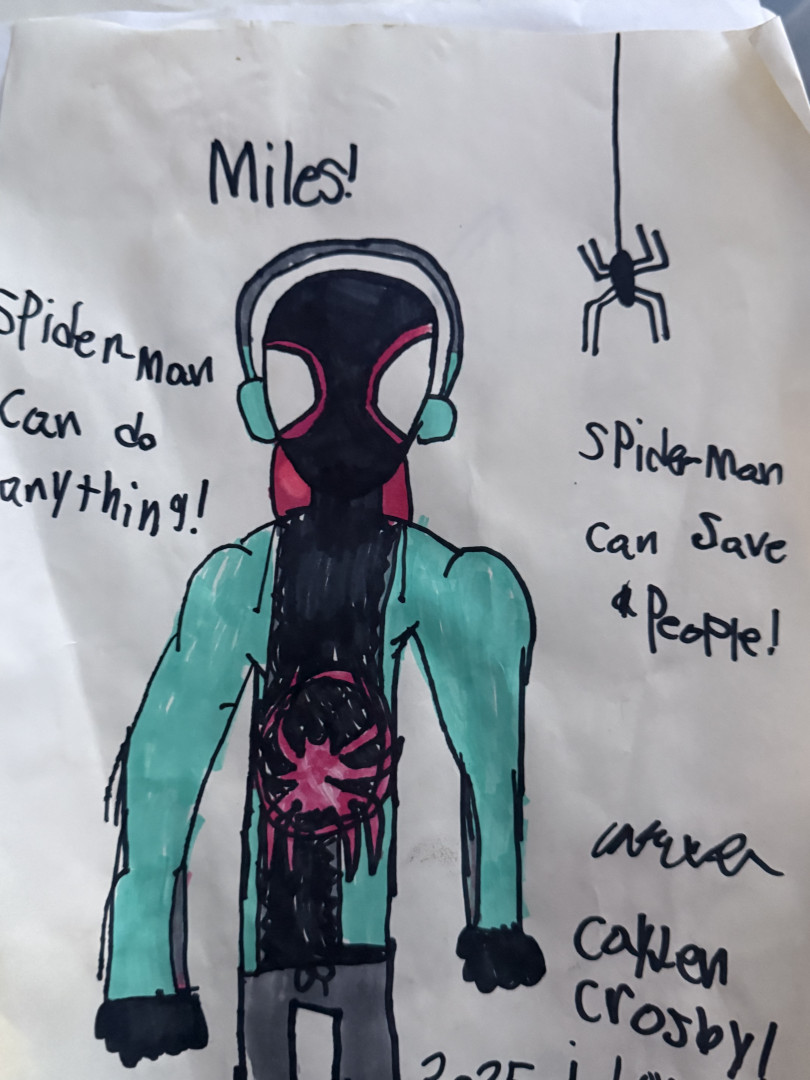 Miles!
Spider-Man
Can do
anything!
Spider-Man
can save
People!
Caylen
Crosby!
2025